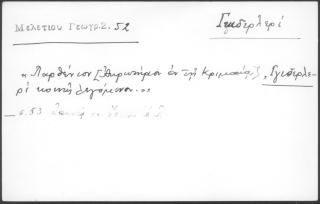 Μελετίου Γεωγρ. 2. 52
Γκιδερλερί
« Παρθένιον [Ἀκρωτήριον ἐν τῇ Κριμαίᾳ], Γκιδερλε-
ρί κοινῶς λεγόμενον..»
σ. 53